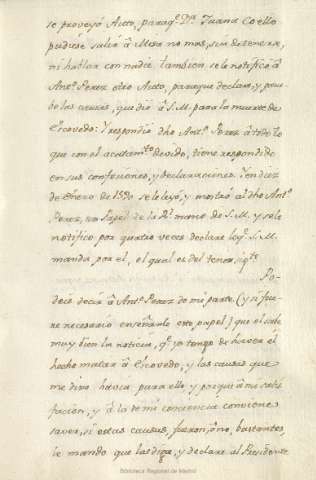 se proveyó Auto, para q.e D.a Juana Coello
pudiese salir â Misa no mas, sin detenerse,
ni hablar con nadie. tambien se le notificó â
Ant.o Perez otro Auto, para que declare, y prue
be las causas, que dio â S.M. para la muerte de
Escovedo: Y respondio dho Ant.o Perez
que con el acatam.to devido, tiene respondido
en sus confesiones, y declaraciones. Y en diez
de Enero de 1590 se le leyó, y mostró al dho Ant.o
Perez, un Papel de la R.l mano de S.M. y se le
notifico por quatro veces declare lo q.e S.M.
manda por el, el qual es del tenor sig.te
Po-
deis decir â Ant.o Perez de mi parte (y si fue-
re necesario enseñarle este papel) que el sabe
muy bien la noticia, q.e yo tengo de haver el
hecho matar â Escovedo, y las causas que
me dixo havia para ello y porque â mi satis
facion, y â la de mi conciencia conviene
saver, si estas causas fueron, ô no, bastantes,
le mando que las diga, y declare al Presidente
Biblioteca Regional de Madrid